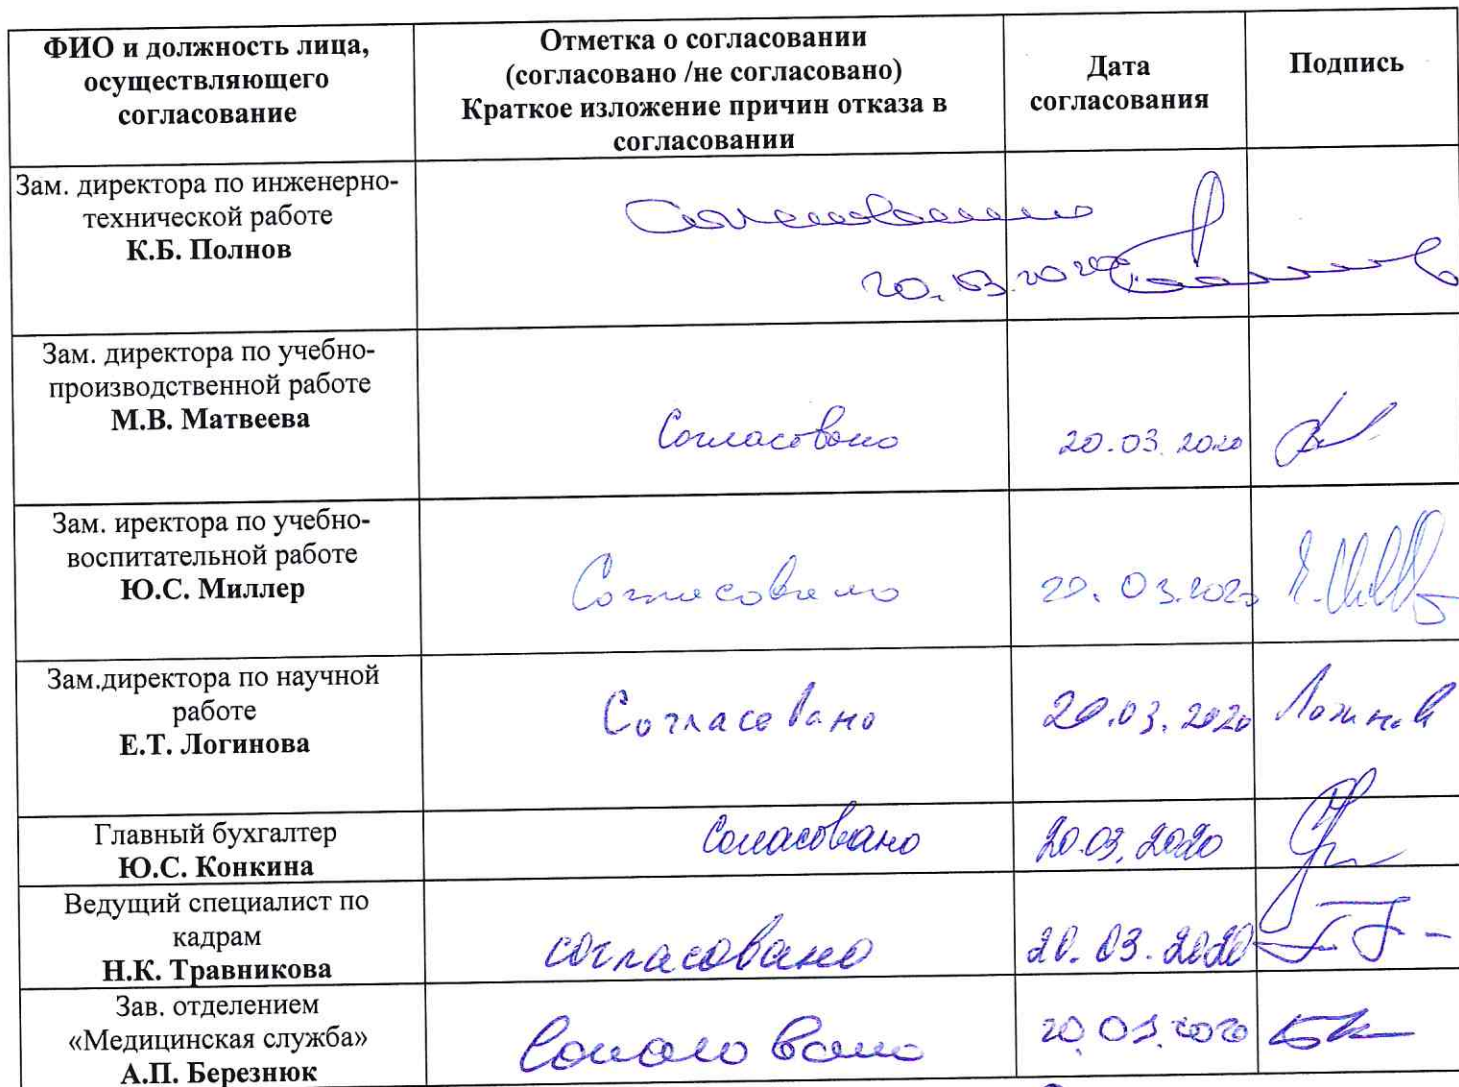 ФИО и должность лица,
осуществляющего
согласование
Отметка о согласовании
(согласовано /не согласовано)
Краткое изложение причин отказа в
согласовании
Дата
согласования
Подпись
Зам. директора по инженерно-
технической работе
К.Б. Полнов
Согласовано
20.03.2020
Зам. директора по учебно-
производственной работе
М.В. Матвеева
Согласовано
20.03.2020
Зам. иректора по учебно-
воспитательной работе
Ю.С. Миллер
Согласовано
20.03.2020
Зам.директора по научной
работе
Е.Т. Логинова
Согласовано
20.03.2020
Главный бухгалтер
Ю.С. Конкина
Согласовано
20.03.2020
Ведущий специалист по
кадрам
Н.К. Травникова
согласовано
20.03.2020
Зав. отделением
«Медицинская служба»
А.П. Березнюк
Согласовано
20.03.2020